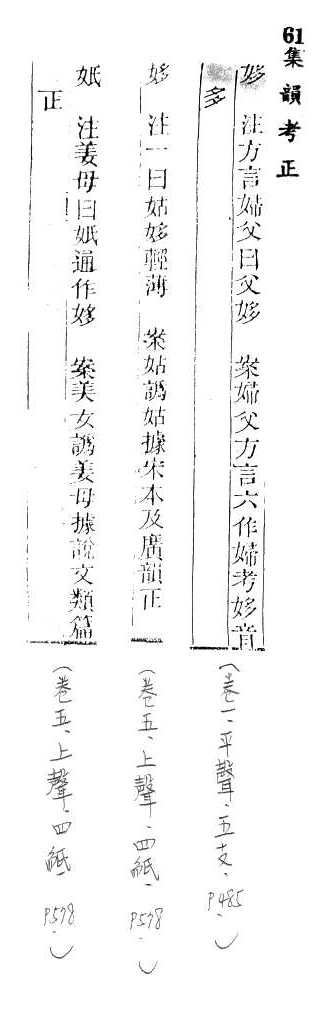 61集韻考正
㛂 注方言婦父曰父㛂 案婦父方言六作婦考㛂音
多
(卷一、平聲、五支、P485、)
㛂 注一曰姑㛂輕薄 案姑譌姑據宋本及廣韻正
(卷五、上聲、四紙、P578、)
妷 注姜母曰妷通作㛂 案美女譌姜母據說文類篇
正
(卷五、上聲、四紙、P578、)